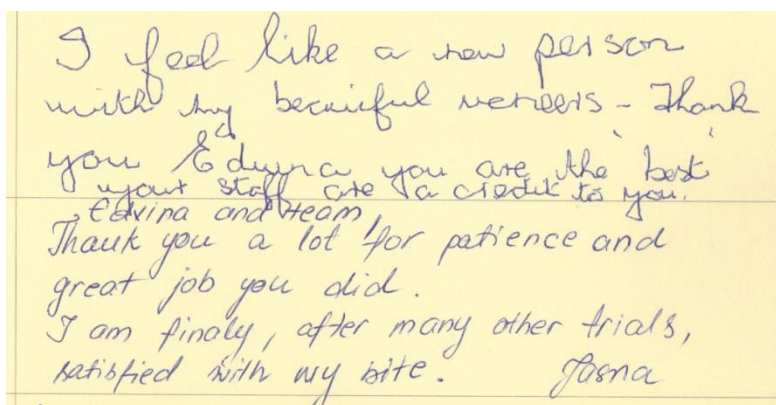 I feel like a new person
with my beauiful veneers - Thank
you Edwina you are the best
your staff are a credit to you.
Edvina and team,
Thauk you a lot for patience and
great job you did.
I am finaly, after many other trials,
satisfied with my bite. Jasna